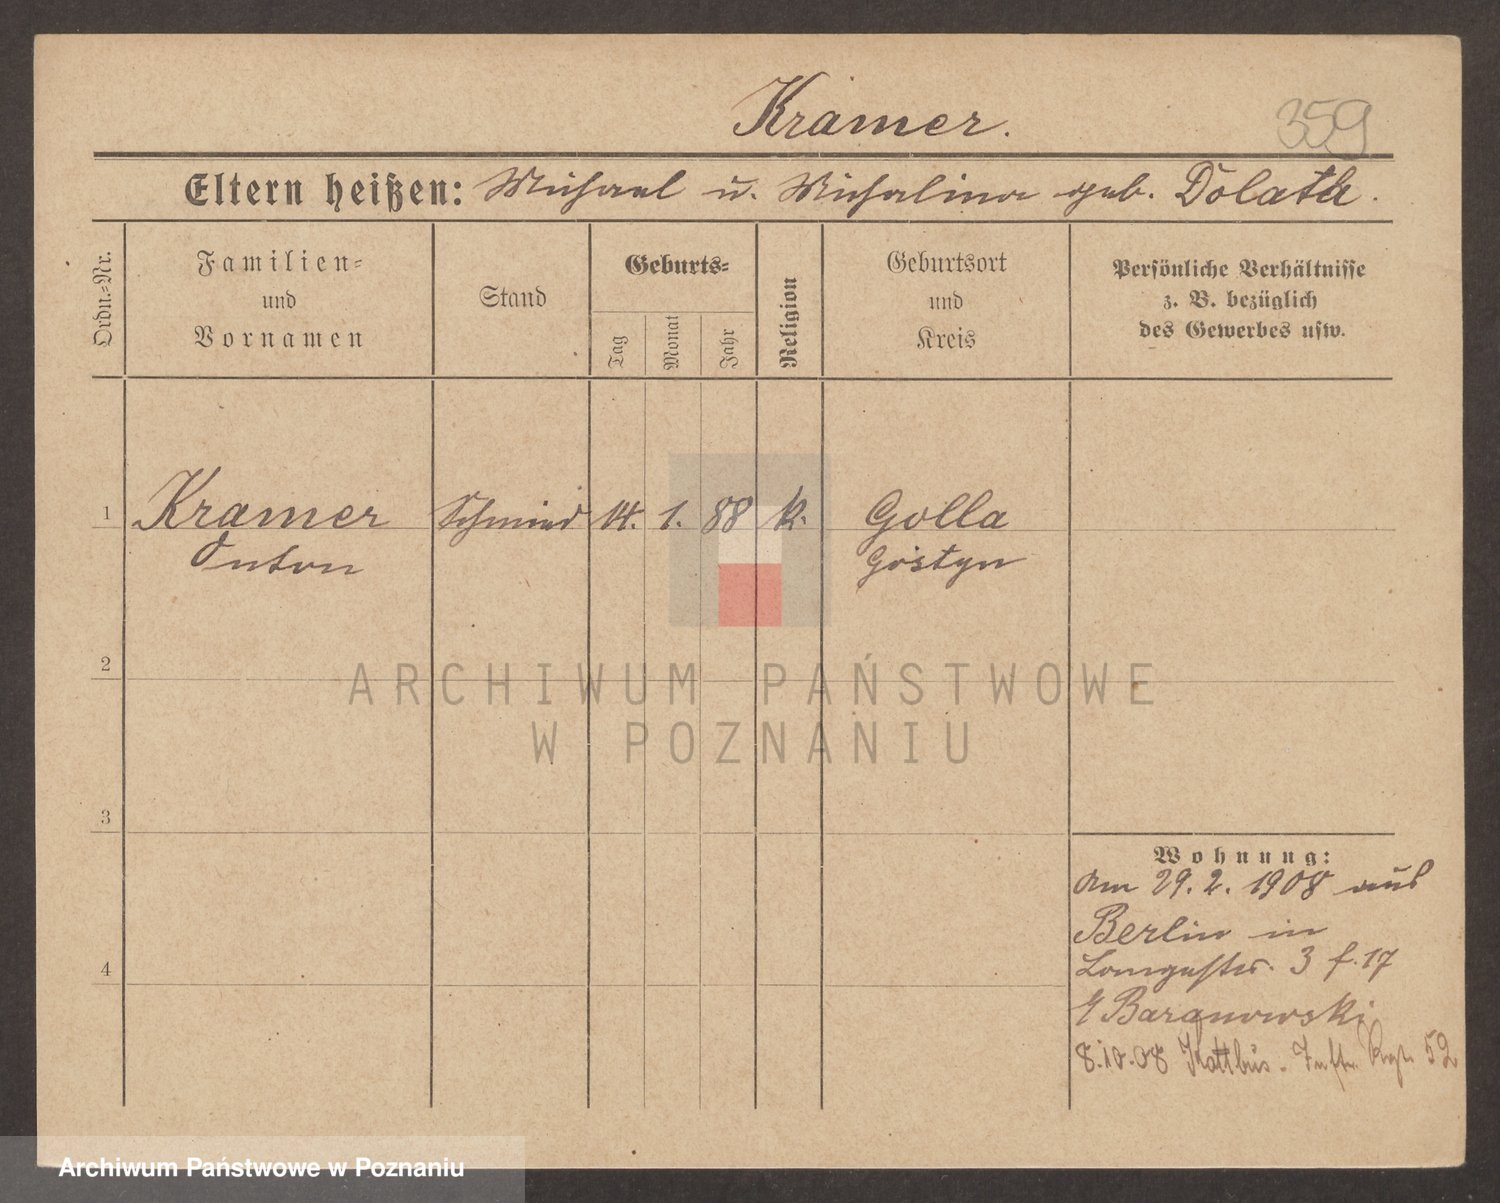 Kramer.
359
Eltern heißen: Michael u. Michalina geb. Dolata.
Ordn.-Nr.
Familien- und Vornamen
Stand
Geburts-
Tag
Monat
Jahr
Religion
Geburtsort und Kreis
Persönliche Verhältnisse
z. B. bezüglich
des Gewerbes usw.
1 Kramer Schmied 14. 1. 88 k. Golla
Anton Gostyn
2
3
4
Wohnung:
Am 29. 2. 1908 aus
Berlin in
3 f. 17
Baranowski
8.10.08 Kottbus. Inftr. Regt. 52
ARCHIWUM PAŃSTWOWE
W POZNANIU
Archiwum Państwowe w Poznaniu